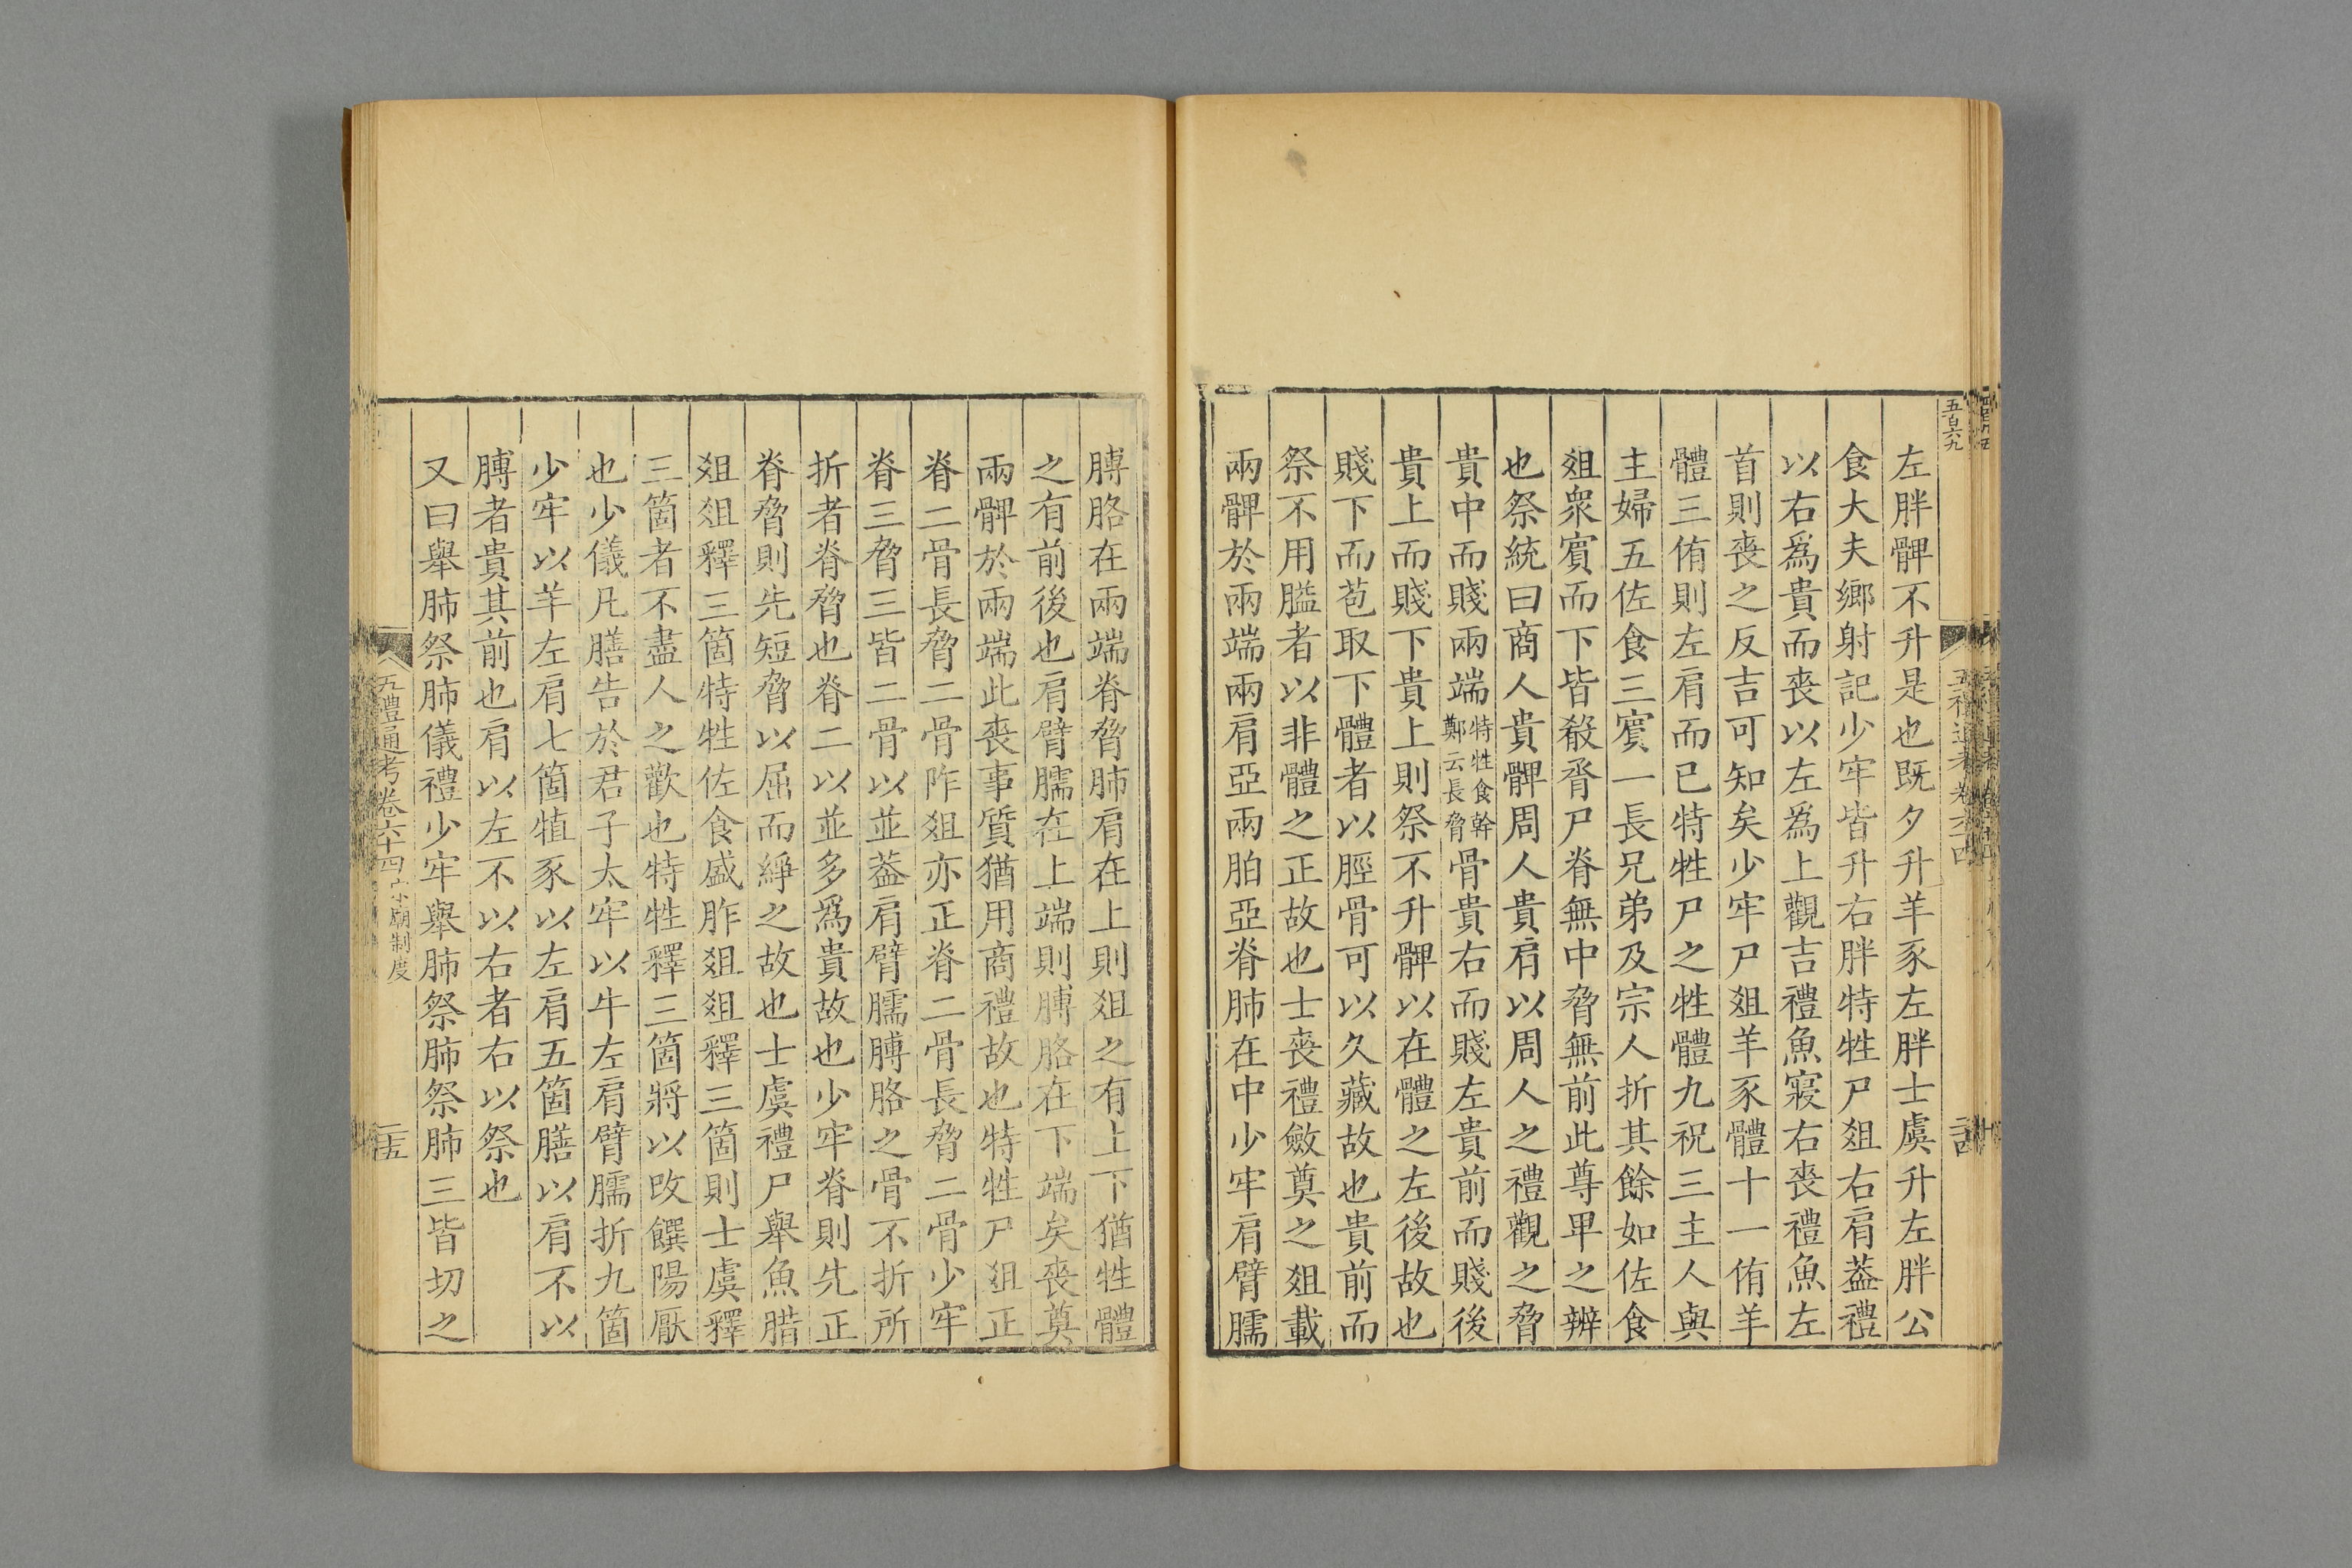 五百六九
五禮通考卷六十四
左胖髀不升是也既夕升羊豕左胖士虞升左胖公
食大夫鄉射記少牢皆升右胖特牲尸俎右肩葢禮
以右爲貴而喪以左爲上觀吉禮魚寢右喪禮魚左
首則喪之反吉可知矣少牢尸俎羊豕體十一侑羊
體三侑則左肩而已特牲尸之牲體九祝三主人與
主婦五佐食三賓一長兄弟及宗人折其餘如佐食
俎衆賓而下皆殽脀尸脊無中脅無前此尊卑之辨
也祭統曰商人貴髀周人貴肩以周人之禮觀之脅
貴中而賤兩端特牲食幹鄭云長脅骨貴右而賤左貴前而賤後
貴上而賤下貴上則祭不升髀以在體之左後故也
賤下而苞取下體者以脛骨可以久藏故也貴前而
祭不用膉者以非體之正故也士喪禮斂奠之俎載
兩髀於兩端兩肩亞兩胉亞脊肺在中少牢肩臂臑
膞胳在兩端脊脅肺肩在上則俎之有上下猶牲體
之有前後也肩臂臑在上端則膞胳在下端矣喪奠
兩髀於兩端此喪事質猶用商禮故也特牲尸俎正
脊二骨長脅二骨阼俎亦正脊二骨長脅二骨少牢
脊三脅三皆二骨以並葢肩臂臑膞胳之骨不折所
折者脊脅也脊二以並多爲貴故也少牢脊則先正
脊脅則先短脅以屈而綪之故也士虞禮尸舉魚腊
俎俎釋三箇特牲佐食盛胙俎俎釋三箇則士虞釋
三箇者不盡人之歡也特牲釋三箇將以改饌陽厭
也少儀凡膳告於君子太牢以牛左肩臂臑折九箇
少牢以羊左肩七箇犆豕以左肩五箇膳以肩不以
膞者貴其前也肩以左不以右者右以祭也
又曰舉肺祭肺儀禮少牢舉肺祭肺祭肺三皆切之
五禮通考卷六十四宗廟制度 二五